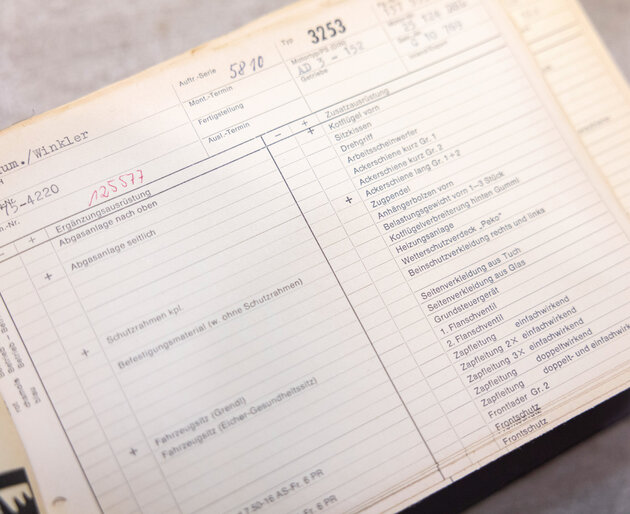 Typ 3253
Auftr.-Serie 5810
Mont.-Termin
Fertigstellung
Ausl.-Termin
AD 3 - 152
Getriebe
/Winkler
-4220
125577
− + Ergänzungsausrüstung
Abgasanlage nach oben
+ Abgasanlage seitlich
+ Schutzrahmen kpl.
Befestigungsmaterial (w. ohne Schutzrahmen)
+ Fahrzeugsitz (Grendl)
Fahrzeugsitz (Eicher-Gesundheitssitz)
7.50-16 AS-Fr. 6 PR
6 PR
− + Zusatzausrüstung
+ Kotflügel vorn
Sitzkissen
Drehgriff
Arbeitsscheinwerfer
Ackerschiene kurz Gr. 1
Ackerschiene kurz Gr. 2
Ackerschiene lang Gr. 1+2
+ Zugpendel
Anhängerbolzen vorn
Belastungsgewicht vorn 1–3 Stück
Kotflügelverbreiterung hinten Gummi
Heizungsanlage
Wetterschutzverdeck „Peko"
Beinschutzverkleidung rechts und links
Seitenverkleidung aus Tuch
Seitenverkleidung aus Glas
Grundsteuergerät
1. Flanschventil
2. Flanschventil
Zapfleitung einfachwirkend
Zapfleitung 2X einfachwirkend
Zapfleitung 3X einfachwirkend
Zapfleitung doppeltwirkend
Zapfleitung doppelt- und einfachwirk
Frontlader Gr. 2
Frontschutz
Frontschutz